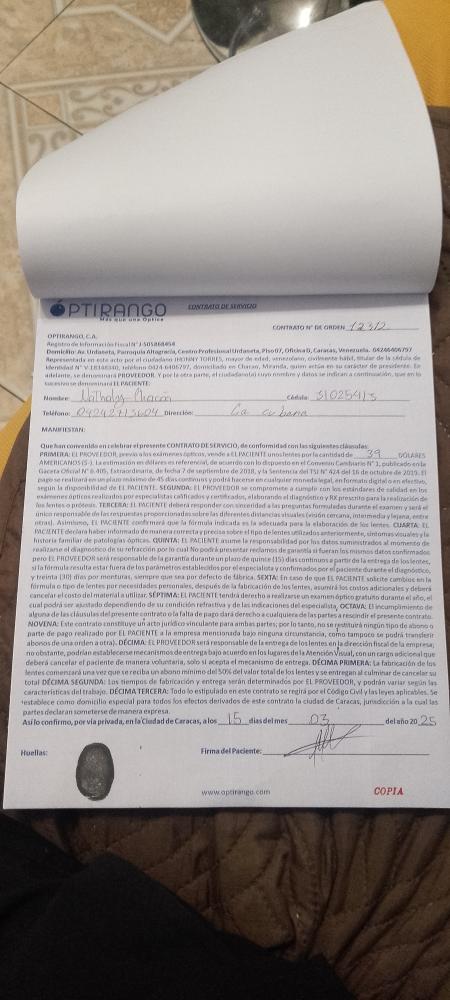 ÓPTIRANGO
Más que una Óptica
CONTRATO DE SERVICIO
CONTRATO N° DE ORDEN 12312
OPTIRANGO, C.A.
Registro de Información Fiscal N° J-505868454
Domicilio: Av. Urdaneta, Parroquia Altagracia, Centro Profesional Urdaneta, Piso 07, Oficina D, Caracas, Venezuela. 04246406797
Representada en este acto por el ciudadano JHONNY TORRES, mayor de edad, venezolano, civilmente hábil, titular de la cédula de
Identidad N° V.18348340, teléfono 0424-6406797, domiciliado en Charao, Miranda, quien actúa en su carácter de presidente. En
adelante, se denominará PROVEEDOR. Y por la otra parte, el ciudadano(a) cuyo nombre y datos se indican a continuación, que en lo
sucesivo se denominará EL PACIENTE:
Nombre: Chacón Cédula:
Teléfono: Dirección: La cubana
MANIFIESTAN:
Que han convenido en celebrar el presente CONTRATO DE SERVICIO, de conformidad con las siguientes cláusulas:
PRIMERA: EL PROVEEDOR, previo a los exámenes ópticos, vende a EL PACIENTE unos lentes por la cantidad de 39 DOLARES
AMERICANOS ($-). La estimación en dólares es referencial, de acuerdo con lo dispuesto en el Convenio Cambiario N° 1, publicado en la
Gaceta Oficial N° 6.405, Extraordinaria, de fecha 7 de septiembre de 2018, y la Sentencia del TSJ N° 424 del 16 de octubre de 2019. El
pago se realizará en un plazo máximo de 45 días continuos y podrá hacerse en cualquier moneda legal, en formato digital o en efectivo,
según la disponibilidad de EL PACIENTE. SEGUNDA: EL PROVEEDOR se compromete a cumplir con los estándares de calidad en los
exámenes ópticos realizados por especialistas calificados y certificados, elaborando el diagnóstico y RX prescrito para la realización de
los lentes o prótesis. TERCERA: EL PACIENTE deberá responder con sinceridad a las preguntas formuladas durante el examen y será el
único responsable de las respuestas proporcionadas sobre las diferentes distancias visuales (visión cercana, intermedia y lejana, entre
otras). Asimismo, EL PACIENTE confirmará que la fórmula indicada es la adecuada para la elaboración de los lentes. CUARTA: EL
PACIENTE declara haber informado de manera correcta y precisa sobre el tipo de lentes utilizados anteriormente, síntomas visuales y la
historia familiar de patologías ópticas. QUINTA: EL PACIENTE asume la responsabilidad por los datos suministrados al momento de
realizarse el diagnostico de su refracción por lo cual No podrá presentar reclamos de garantía si fueran los mismos datos confirmados
pero EL PROVEEDOR será responsable de la garantía durante un plazo de quince (15) días continuos a partir de la entrega de los lentes,
si la fórmula resulta estar fuera de los parámetros establecidos por el especialista y confirmados por el paciente durante el diagnóstico,
y treinta (30) días por monturas, siempre que sea por defecto de fábrica. SEXTA: En caso de que EL PACIENTE solicite cambios en la
fórmula o tipo de lentes por necesidades personales, después de la fabricación de los lentes, asumirá los costos adicionales y deberá
cancelar el costo del material a utilizar. SÉPTIMA: EL PACIENTE tendrá derecho a realizarse un examen óptico gratuito durante el año, el
cual podrá ser ajustado dependiendo de su condición refractiva y de las indicaciones del especialista. OCTAVA: El incumplimiento de
alguna de las cláusulas del presente contrato o la falta de pago dará derecho a cualquiera de las partes a rescindir el presente contrato.
NOVENA: Este contrato constituye un acto jurídico vinculante para ambas partes; por lo tanto, no se restituirá ningún tipo de abono o
parte de pago realizado por EL PACIENTE a la empresa mencionada bajo ninguna circunstancia, como tampoco se podrá transferir
abonos de una orden a otra). DÉCIMA: EL PROVEEDOR será responsable de la entrega de los lentes en la dirección fiscal de la empresa,
no obstante, podrán establecerse mecanismos de entrega bajo acuerdo en los lugares de la Atención Visual, con un cargo adicional que
deberá cancelar el paciente de manera voluntaria, solo si acepta el mecanismo de entrega. DÉCIMA PRIMERA: La fabricación de los
lentes comenzará una vez que se reciba un abono mínimo del 50% del valor total de los lentes y se entregan al culminar de cancelar su
total DÉCIMA SEGUNDA: Los tiempos de fabricación y entrega serán determinados por EL PROVEEDOR, y podrán variar según las
características del trabajo. DÉCIMA TERCERA: Todo lo estipulado en este contrato se regirá por el Código Civil y las leyes aplicables. Se
establece como domicilio especial para todos los efectos derivados de este contrato la ciudad de Caracas, jurisdicción a la cual las
partes declaran someterse de manera expresa.
Así lo confirmo, por vía privada, en la Ciudad de Caracas, a los 15 días del mes 03 del año 2025
Huellas: Firma del Paciente:
www.optirango.com
COPIA